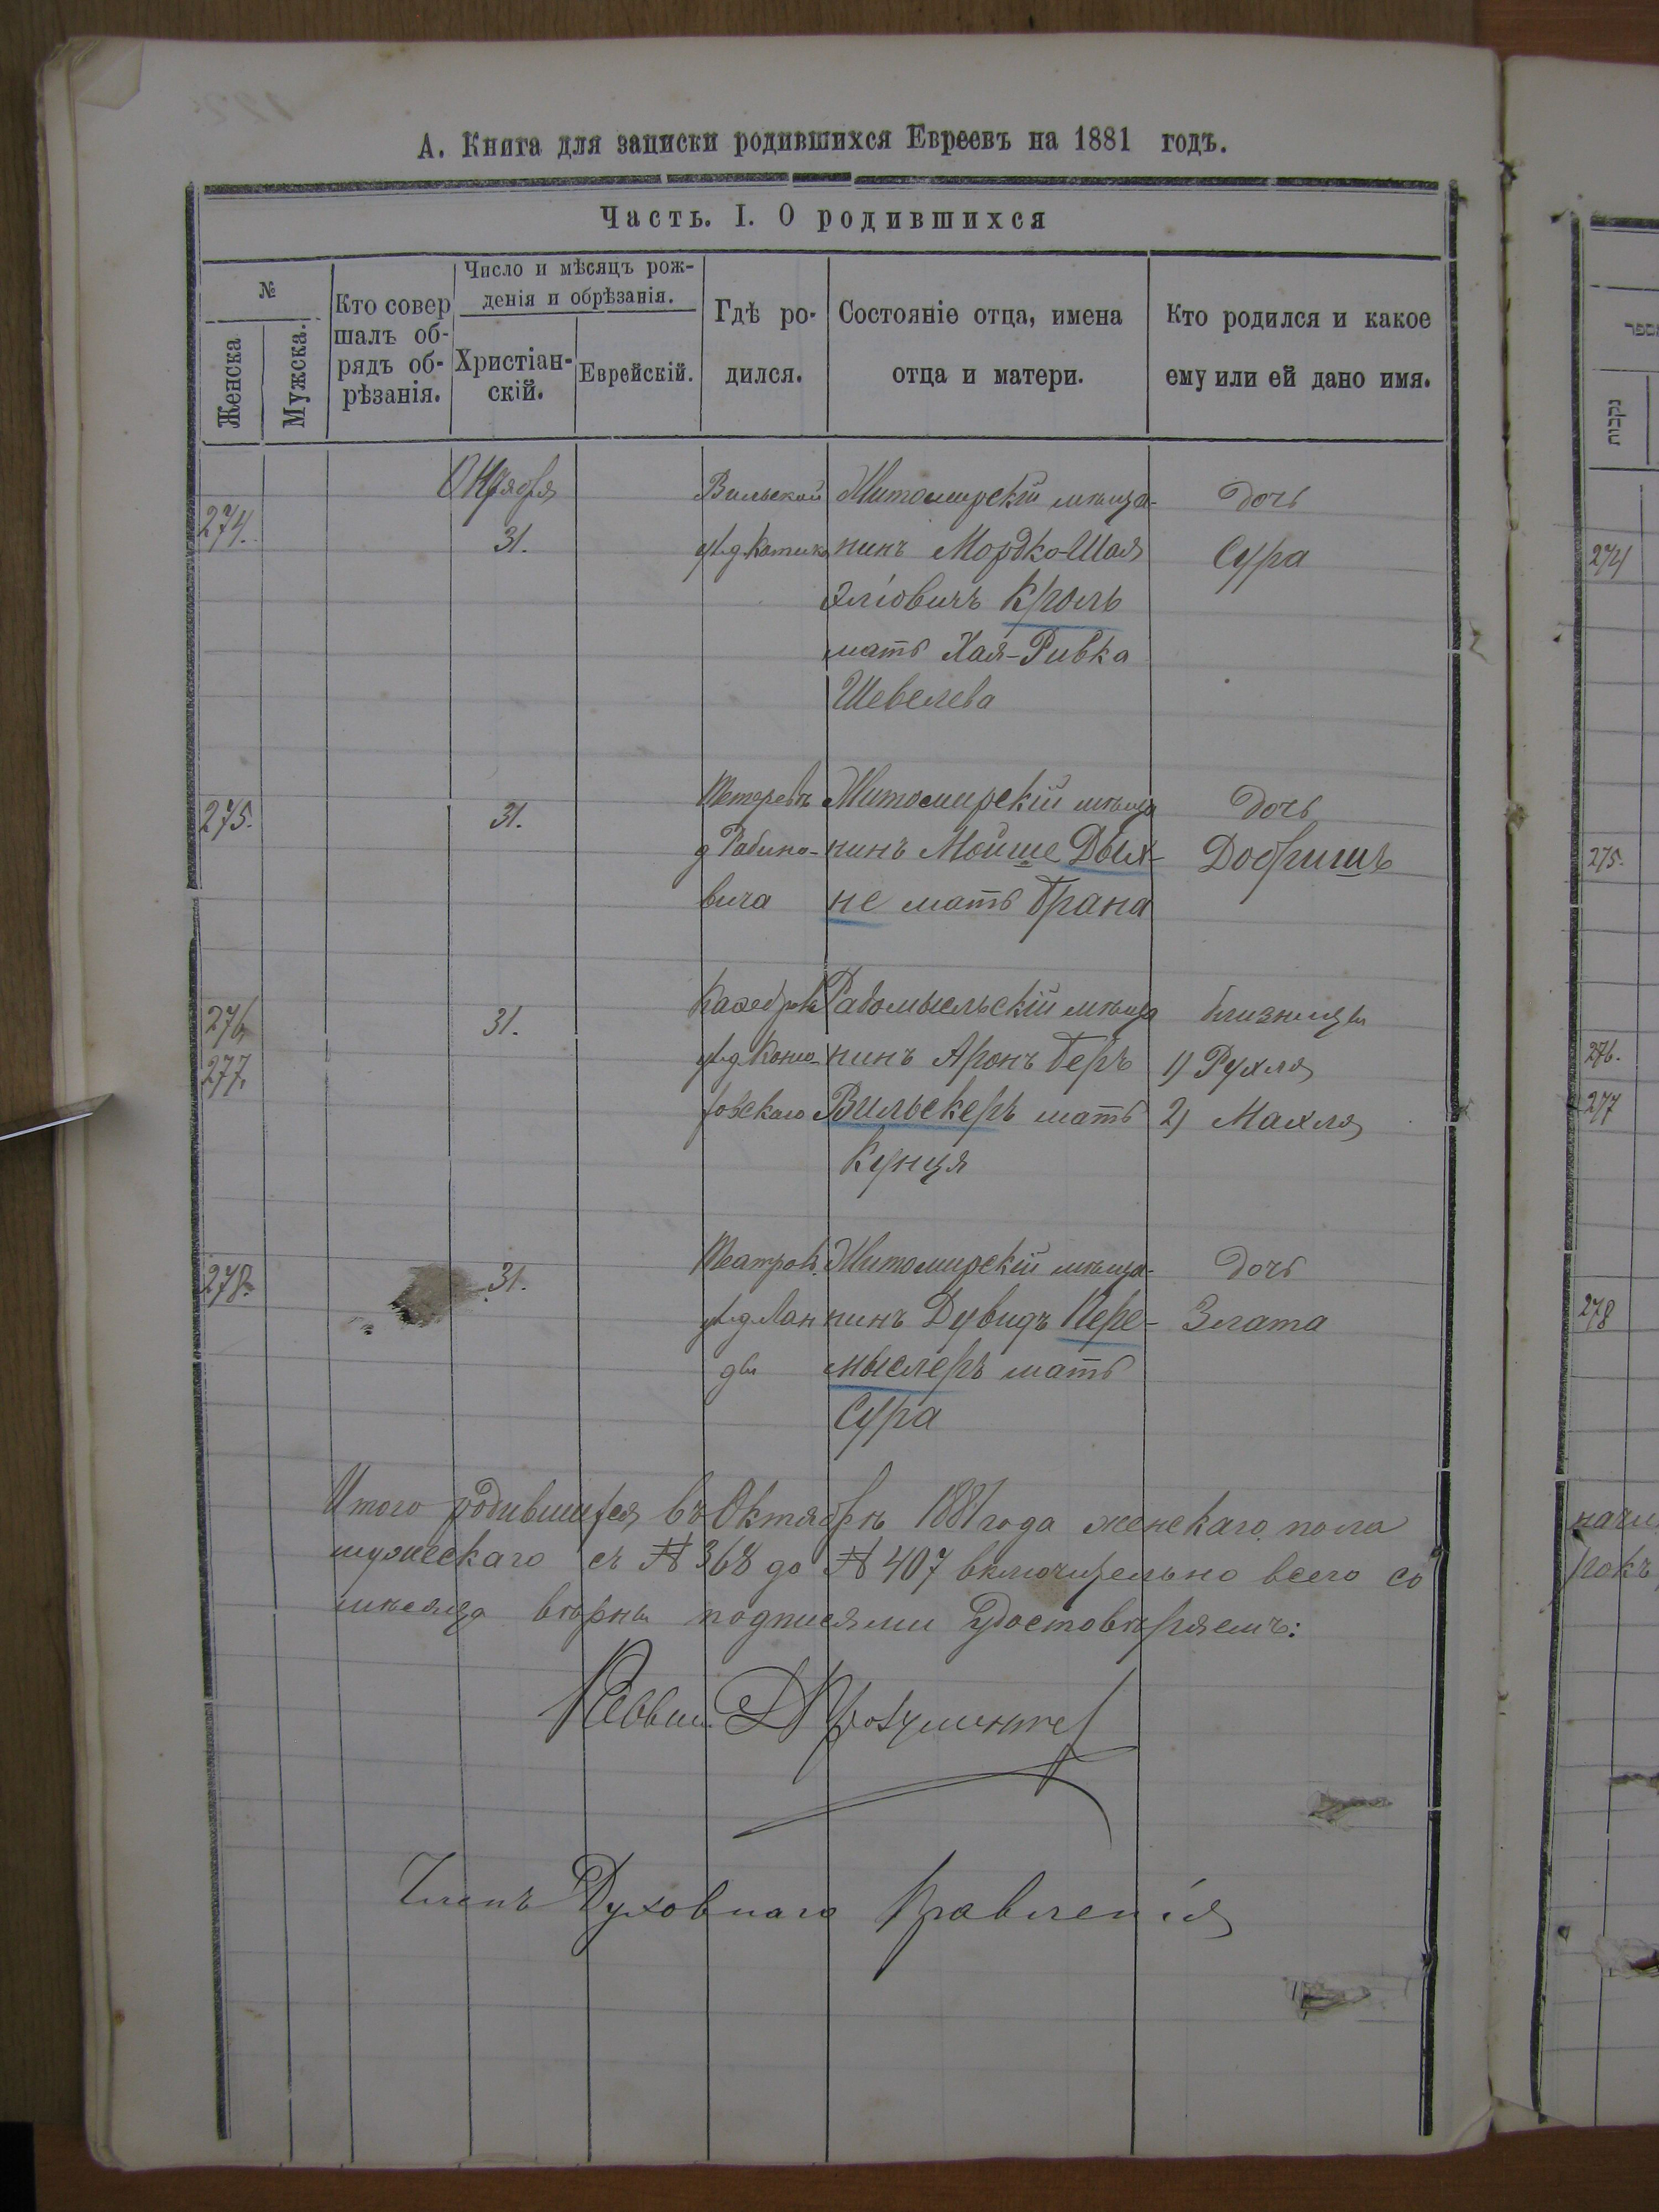 А. Книга для записки родившихся Евреевъ на 1881 годъ.
Часть. I. О родившихся
№
Женска
Мужска.
Кто совер
шалъ об-
рядъ об-
рѣзанія.
Число и мѣсяцъ рож-
денія и обрѣзанія.
Христіан-
скій.
Еврейскій.
Гдѣ ро-
дился.
Состояніе отца, имена
отца и матери.
Кто родился и какое
ему или ей дано имя.
274.
Октября
31.
Вильской
Житомирскій мѣща-
нинъ Мордко-Шая
Эліовичъ Кроль
мать Хая-Ривка
Шевелева
дочь
Сура
275.
31.
Тетеревк
д Рабино-
вича
Житомирскій мѣща
нинъ Мойше Дых-
не мать Брана
дочь
Добришъ
276
277.
31.
Кафедрал
Радомысльскій мѣща
нинъ Аронъ Беръ
Вильскеръ мать
Куня
близницы
1) Рухля
2) Махля
278.
31.
Театров.
ул. д. Лан
ды
Житомирскій мѣща-
нинъ Дувидъ Пере-
мыслеръ мать
Сура
дочь
Злата
Итого родившихся въ Октябрѣ 1881 года женскаго пола
мужескаго съ № 368 до № 407 включительно всего со
мѣсяца вѣрны подписями удостовѣряемъ:
Раввин
Членъ Духовнаго Правленія
נקבות
274
275.
276.
277
278